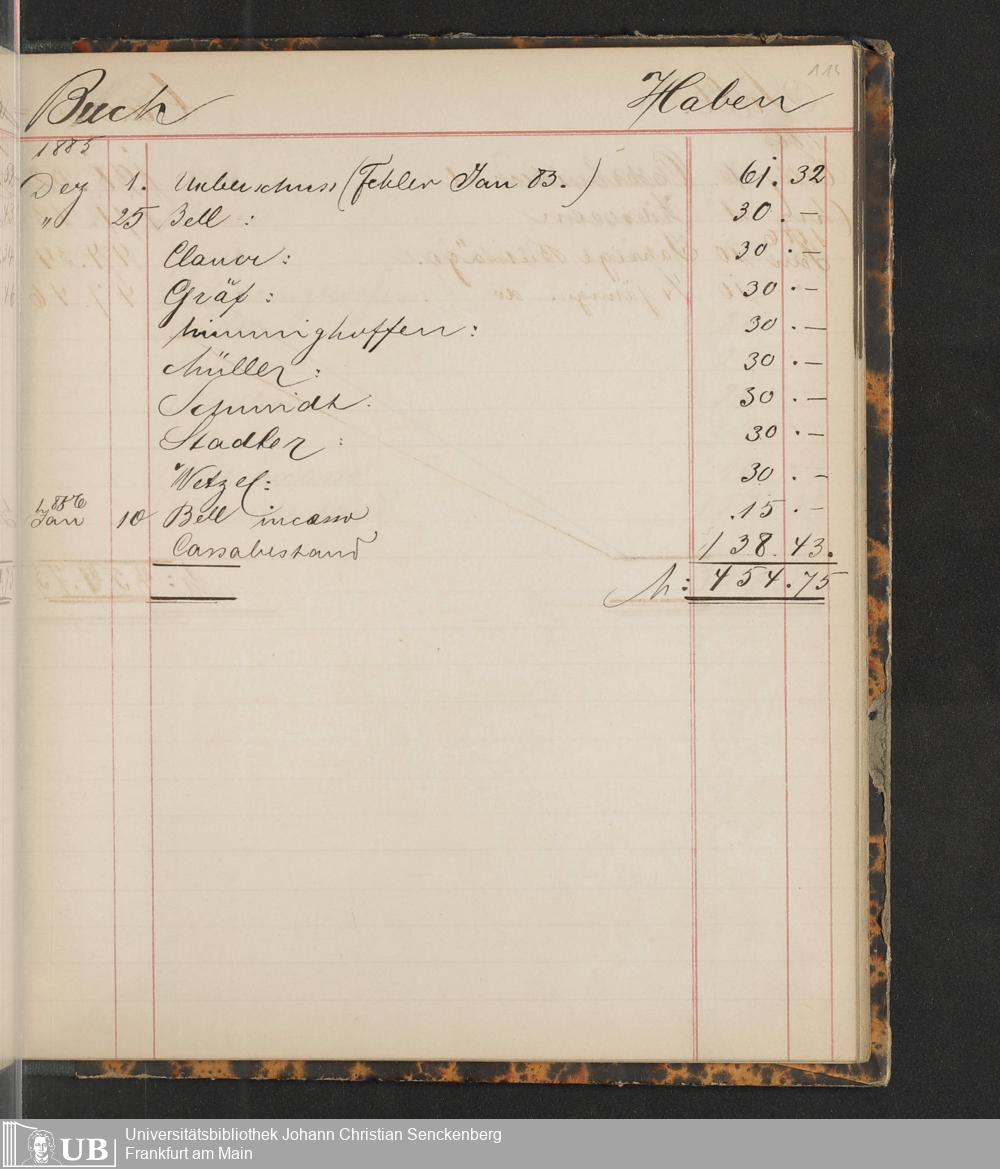 115
Buch Haben
1885
Dez 1. Ueberschuss (Fehler Jan 83.) 61. 32
" 25 Bell : 30 . —
Clauer : 30 . —
Gräf : 30 . —
Minnighoffen : 30 . —
Müller : 30 . —
Schmidt : 30 . —
Stadler : 30 . —
Wetzel : 30 . —
1886
Jan 10 Bell incasso .15 . —
Cassabestand 138. 43.
M: 454.75
UB Universitätsbibliothek Johann Christian Senckenberg
Frankfurt am Main